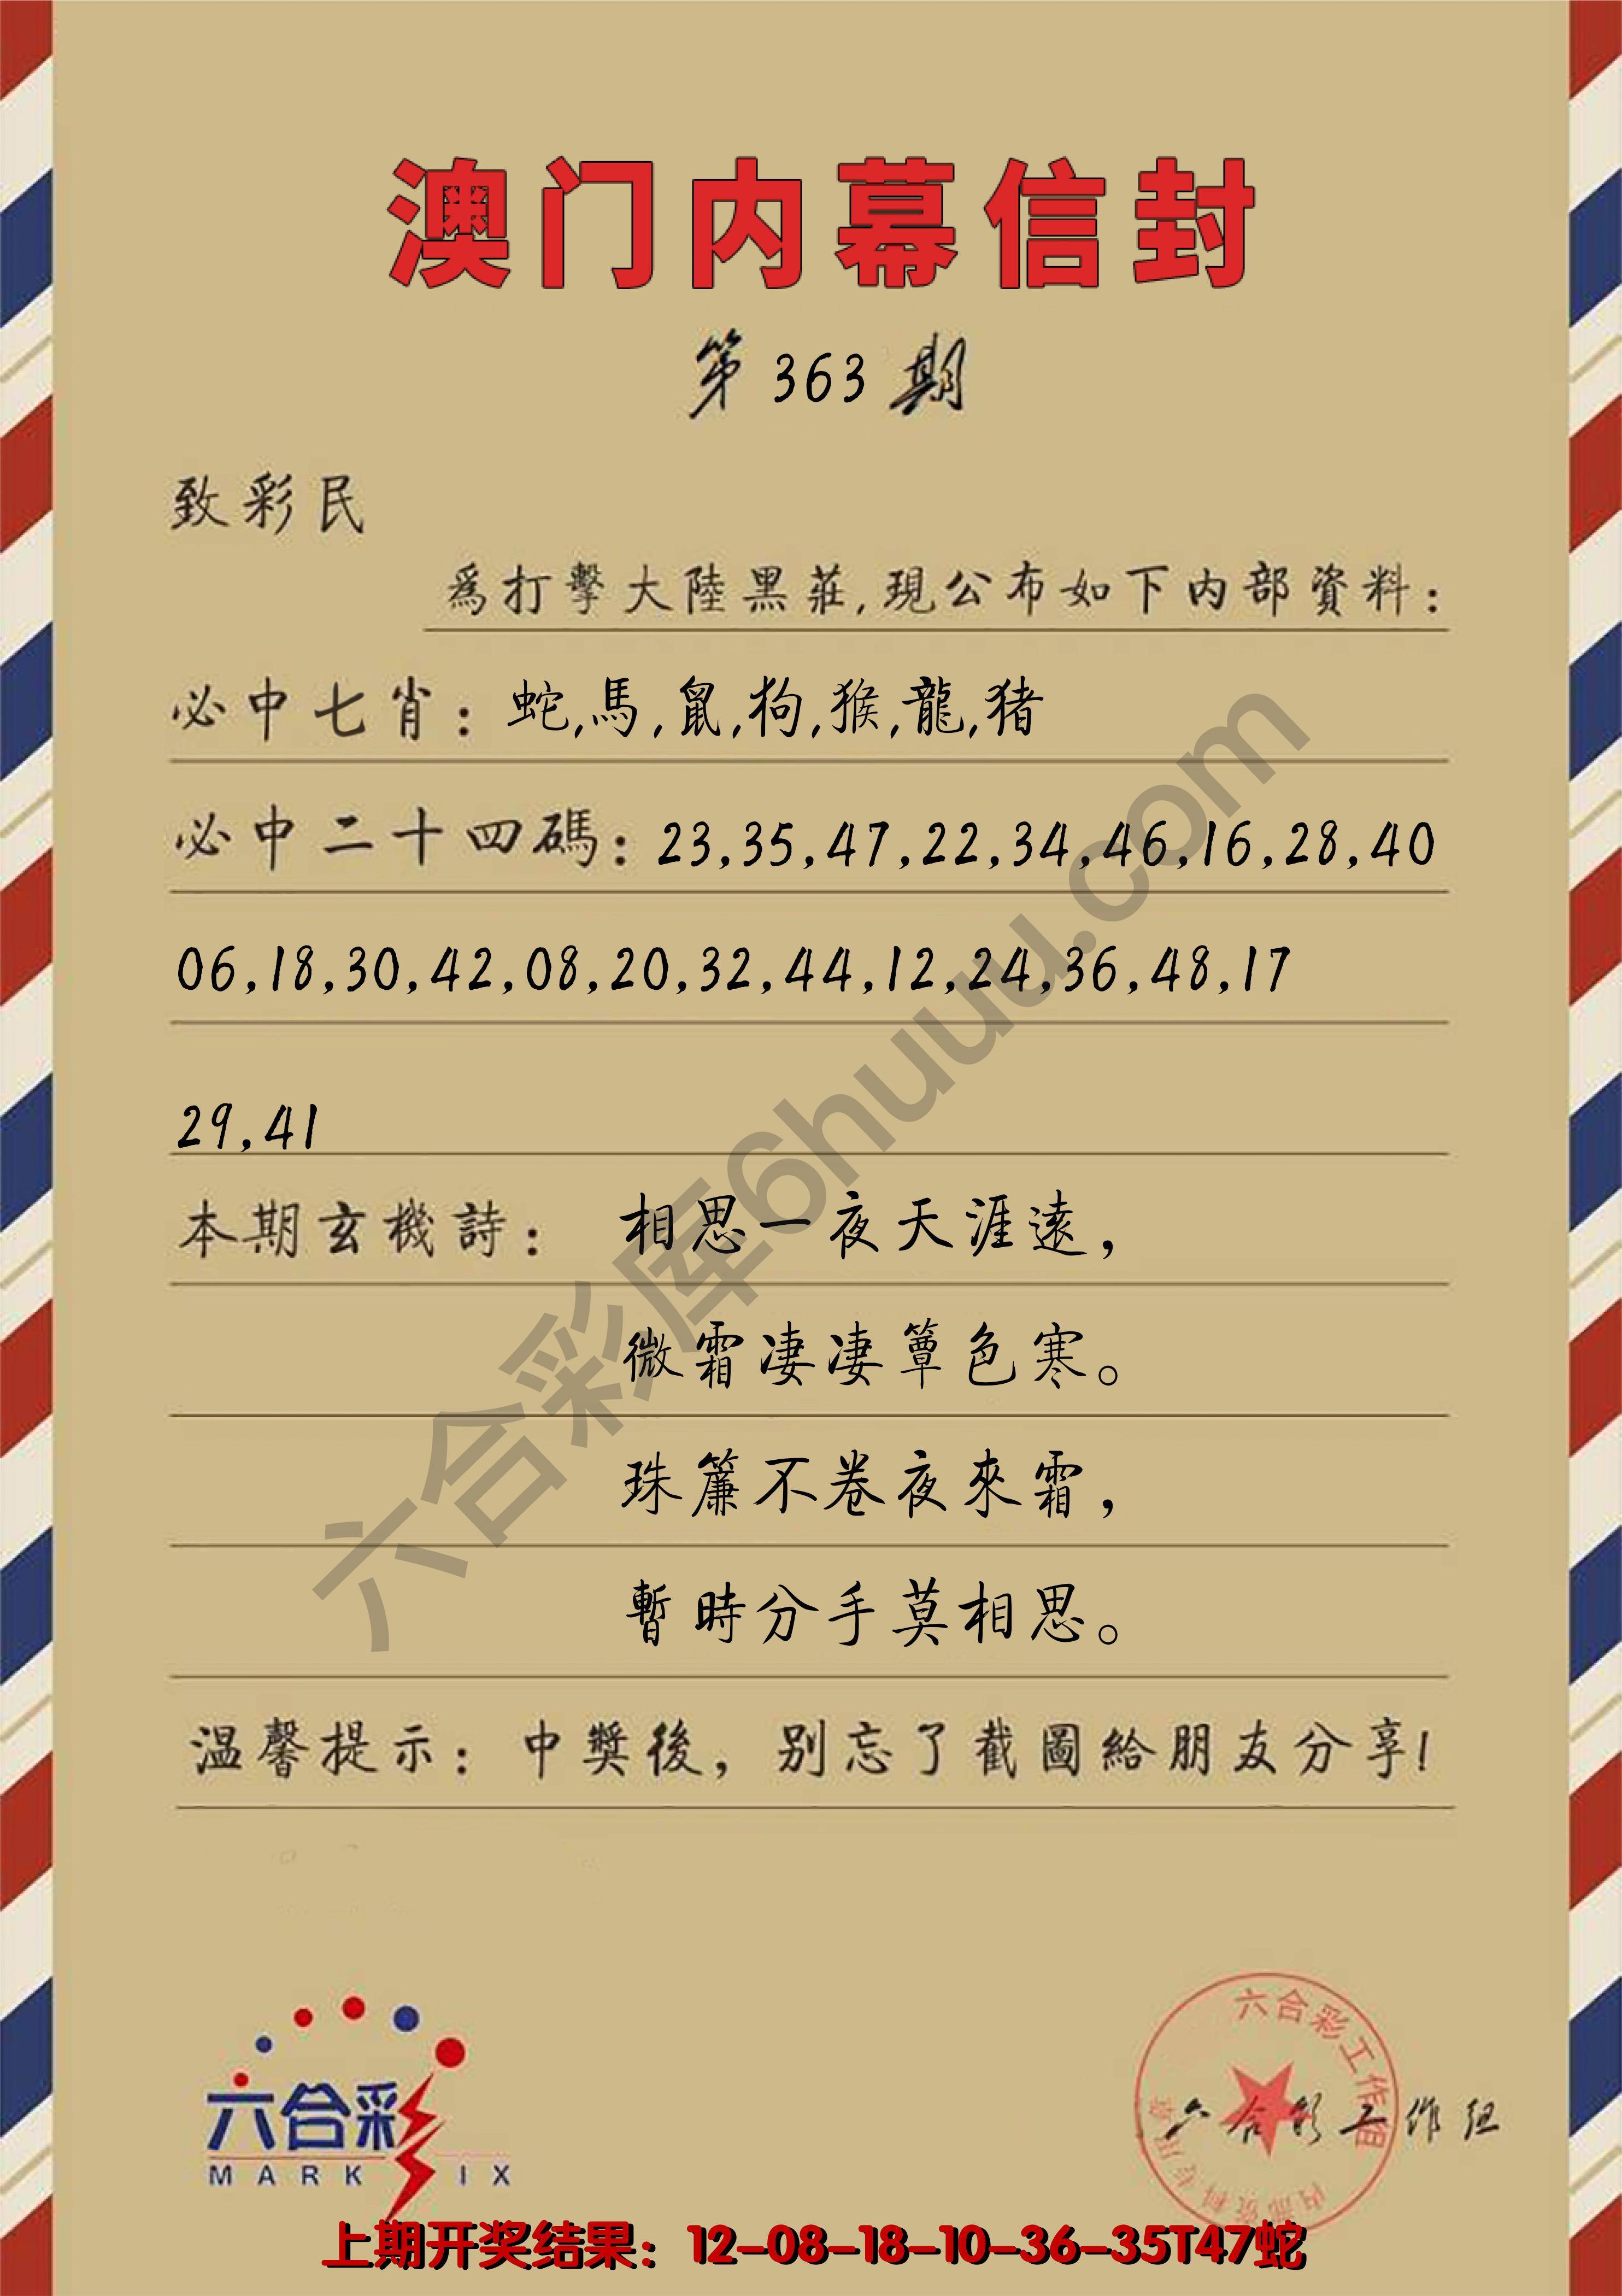 澳门内幕信封
第 363 期
致彩民
爲打擊大陸黑莊,現公布如下内部資料:
必中七肖: 蛇,馬,鼠,狗,猴,龍,猪
必中二十四碼: 23,35,47,22,34,46,16,28,40
06,18,30,42,08,20,32,44,12,24,36,48,17
29,41
本期玄機詩: 相思一夜天涯遠,
微霜凄凄簟色寒。
珠簾不卷夜來霜,
暫時分手莫相思。
温馨提示: 中獎後, 别忘了截圖給朋友分享!
六合彩库6huuu.com
六合彩
MARK SIX
六合彩工作组
内部资料专用章
六合彩工作组
上期开奖结果: 12-08-18-10-36-35T47蛇